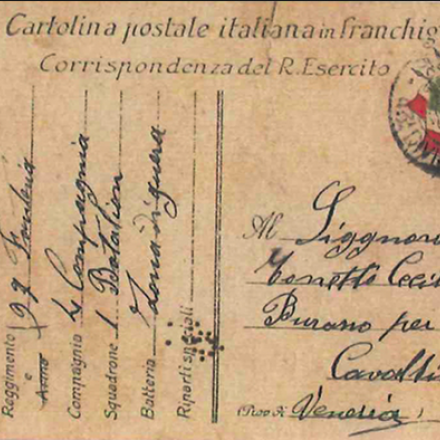 Cartolina postale italiana in franchig
Corrispondenza del R. Esercito
Reggimento e Arma 97 Fanteria
Compagnia 4 Compagnia
Squadrone 1 Batalion
Batteria Zona di guera
Riparti speciali
Al Siggnori
Tonetti Ceci
Burano per
Cavalli
(Prov di Venezia)